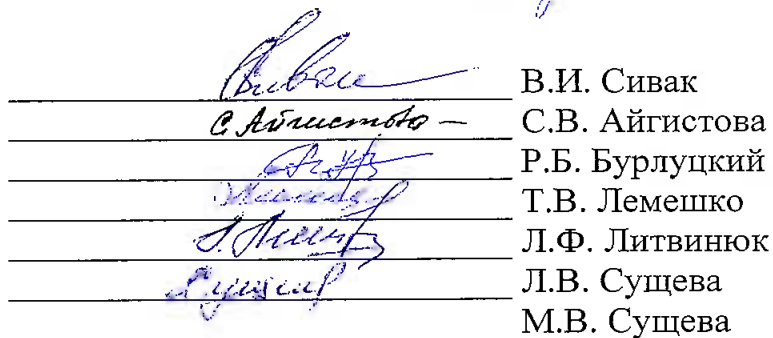 В.И. Сивак
С. Айгистова С.В. Айгистова
Р.Б. Бурлуцкий
Т.В. Лемешко
Л.Ф. Литвинюк
Л.В. Сущева
М.В. Сущева